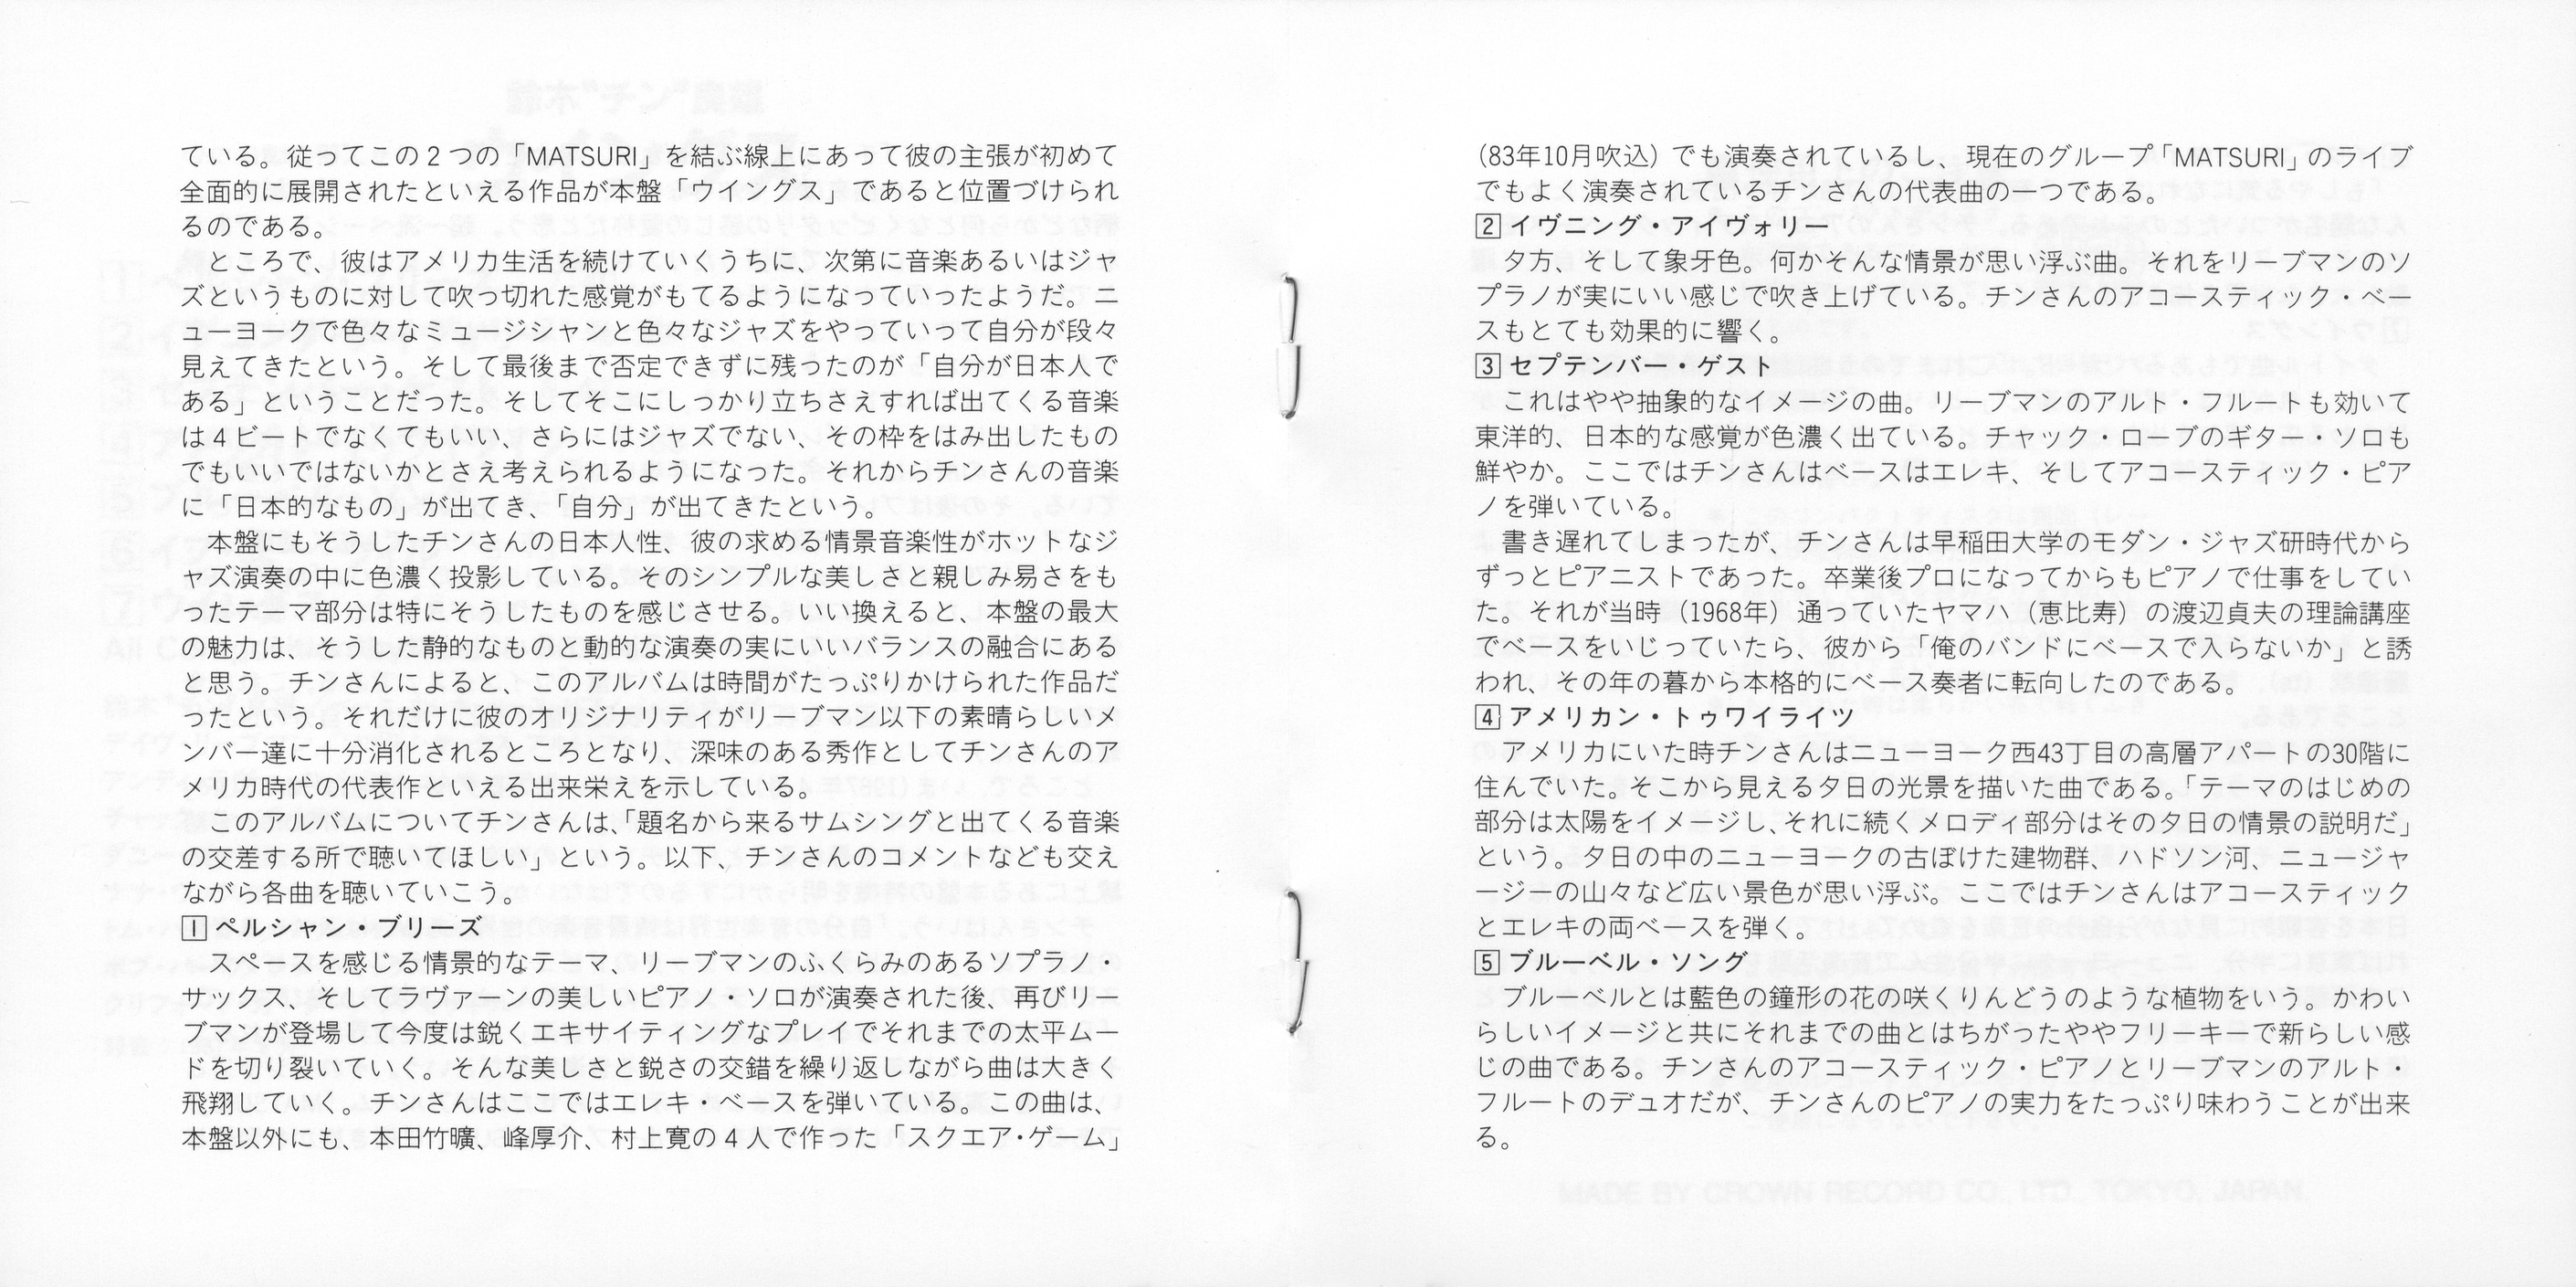 ている。従ってこの2つの「MATSURI」を結ぶ線上にあって彼の主張が初めて
全面的に展開されたといえる作品が本盤「ウイングス」であると位置づけられ
るのである。
ところで、彼はアメリカ生活を続けていくうちに、次第に音楽あるいはジャ
ズというものに対して吹っ切れた感覚がもてるようになっていったようだ。ニ
ューヨークで色々なミュージシャンと色々なジャズをやっていって自分が段々
見えてきたという。そして最後まで否定できずに残ったのが「自分が日本人で
ある」ということだった。そしてそこにしっかり立ちさえすれば出てくる音楽
は4ビートでなくてもいい、さらにはジャズでない、その枠をはみ出したもの
でもいいではないかとさえ考えられるようになった。それからチンさんの音楽
に「日本的なもの」が出てき、「自分」が出てきたという。
本盤にもそうしたチンさんの日本人性、彼の求める情景音楽性がホットなジ
ャズ演奏の中に色濃く投影している。そのシンプルな美しさと親しみ易さをも
ったテーマ部分は特にそうしたものを感じさせる。いい換えると、本盤の最大
の魅力は、そうした静的なものと動的な演奏の実にいいバランスの融合にある
と思う。チンさんによると、このアルバムは時間がたっぷりかけられた作品だ
ったという。それだけに彼のオリジナリティがリーブマン以下の素晴らしいメ
ンバー達に十分消化されるところとなり、深味のある秀作としてチンさんのア
メリカ時代の代表作といえる出来栄えを示している。
このアルバムについてチンさんは、「題名から来るサムシングと出てくる音楽
の交差する所で聴いてほしい」という。以下、チンさんのコメントなども交え
ながら各曲を聴いていこう。
1 ペルシャン・ブリーズ
スペースを感じる情景的なテーマ、リーブマンのふくらみのあるソプラノ・
サックス、そしてラヴァーンの美しいピアノ・ソロが演奏された後、再びリー
ブマンが登場して今度は鋭くエキサイティングなプレイでそれまでの太平ムー
ドを切り裂いていく。そんな美しさと鋭さの交錯を繰り返しながら曲は大きく
飛翔していく。チンさんはここではエレキ・ベースを弾いている。この曲は、
本盤以外にも、本田竹曠、峰厚介、村上寛の4人で作った「スクエア・ゲーム」
(83年10月吹込)でも演奏されているし、現在のグループ「MATSURI」のライブ
でもよく演奏されているチンさんの代表曲の一つである。
2 イヴニング・アイヴォリー
夕方、そして象牙色。何かそんな情景が思い浮ぶ曲。それをリーブマンのソ
プラノが実にいい感じで吹き上げている。チンさんのアコースティック・ベー
スもとても効果的に響く。
3 セプテンバー・ゲスト
これはやや抽象的なイメージの曲。リーブマンのアルト・フルートも効いて
東洋的、日本的な感覚が色濃く出ている。チャック・ローブのギター・ソロも
鮮やか。ここではチンさんはベースはエレキ、そしてアコースティック・ピア
ノを弾いている。
書き遅れてしまったが、チンさんは早稲田大学のモダン・ジャズ研時代から
ずっとピアニストであった。卒業後プロになってからもピアノで仕事をしてい
た。それが当時(1968年)通っていたヤマハ(恵比寿)の渡辺貞夫の理論講座
でベースをいじっていたら、彼から「俺のバンドにベースで入らないか」と誘
われ、その年の暮から本格的にベース奏者に転向したのである。
4 アメリカン・トゥワイライツ
アメリカにいた時チンさんはニューヨーク西43丁目の高層アパートの30階に
住んでいた。そこから見える夕日の光景を描いた曲である。「テーマのはじめの
部分は太陽をイメージし、それに続くメロディ部分はその夕日の情景の説明だ」
という。夕日の中のニューヨークの古ぼけた建物群、ハドソン河、ニュージャ
ージーの山々など広い景色が思い浮ぶ。ここではチンさんはアコースティック
とエレキの両ベースを弾く。
5 ブルーベル・ソング
ブルーベルとは藍色の鐘形の花の咲くりんどうのような植物をいう。かわい
らしいイメージと共にそれまでの曲とはちがったややフリーキーで新らしい感
じの曲である。チンさんのアコースティック・ピアノとリーブマンのアルト・
フルートのデュオだが、チンさんのピアノの実力をたっぷり味わうことが出来
る。